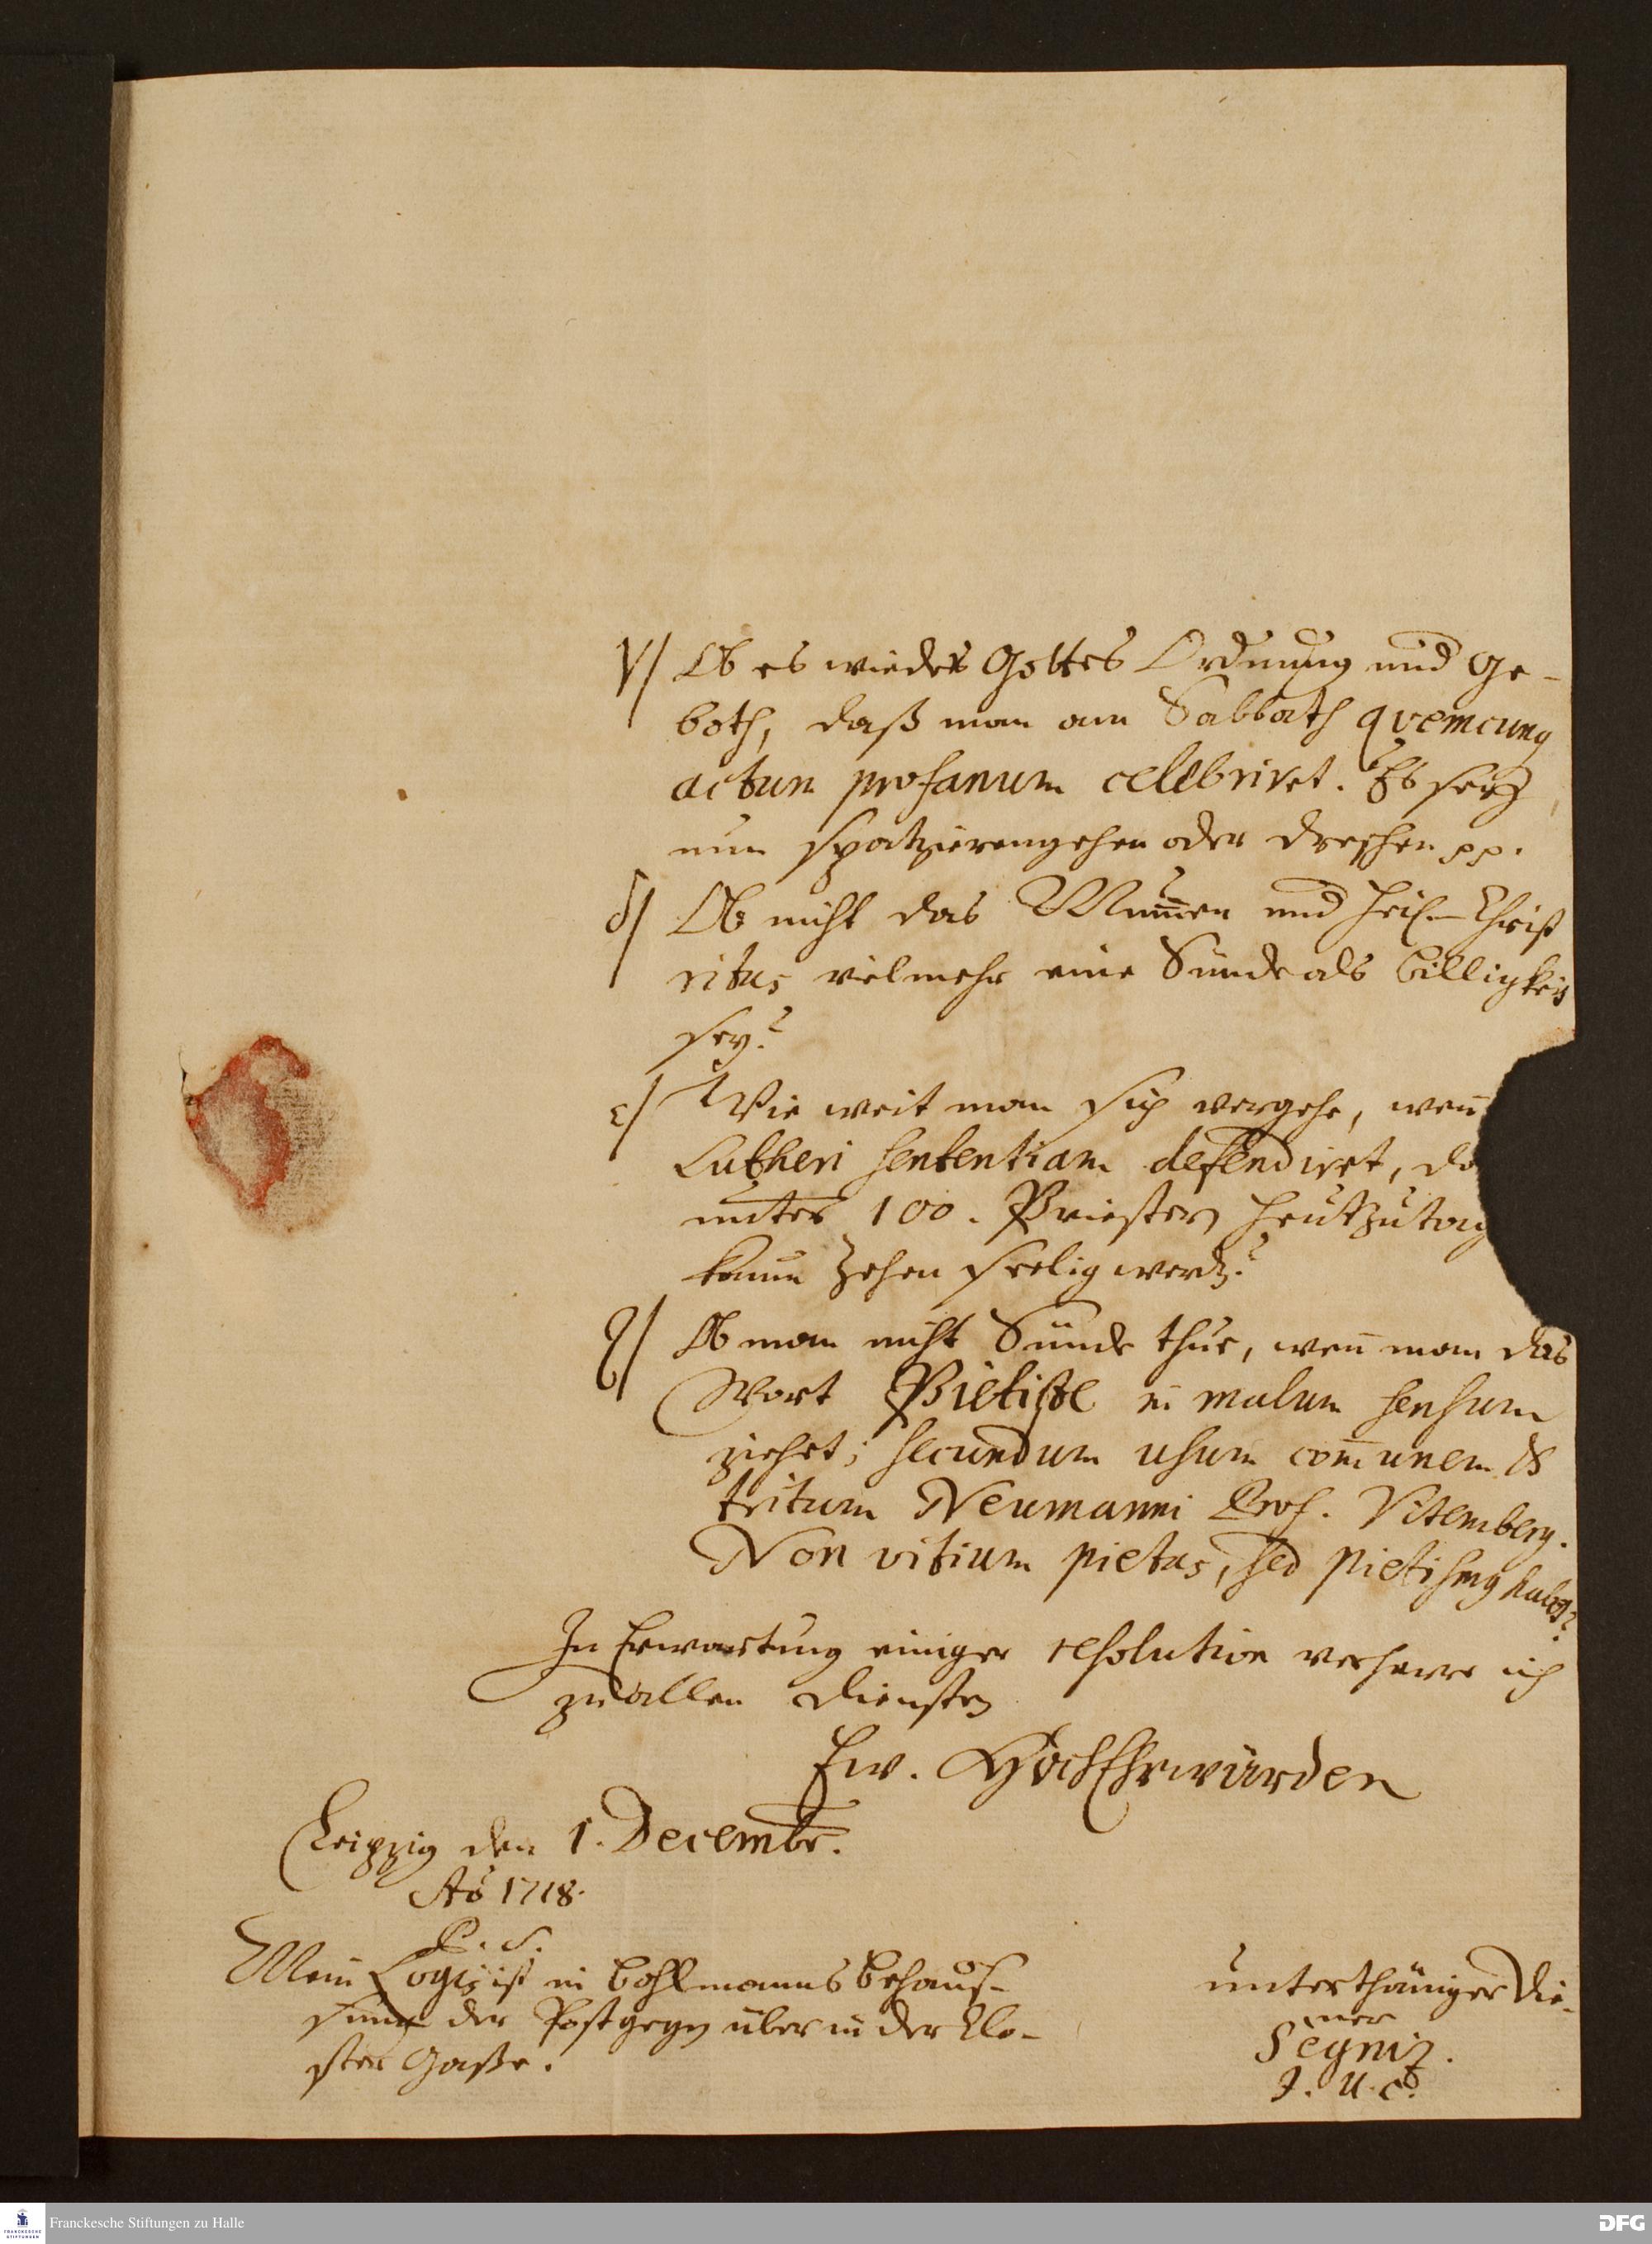 γ/ Ob es wieder Gottes Ordnung und Ge-
both, daß man am Sabbath qvemcunq
actum profanum celebriret. Es sey
nun spatzierengehen oder dreschen pp.
δ/ Ob nicht das Mummen und heil. Christ
ritus vielmehr eine Sünde als billigkeit
sey?
ε/ Wie weit man sich vergehe, wen̄
Lutheri sententiam defendiret, da
unter 100. Priestern heutzutag
kaum Zehen seelig werden?
Ob man nicht Sünde thue, wen̄ man das
Wort Pietiste in malum sensum
ziehet; secundum usum com̄unem &
tritum Neumanni Prof. Vitemberg.
Non vitium pietas, sed pietismq habet?
In Erwartung einiger resolution verharre ich
zu allen Diensten
Ew. HochEhrwürden
Leipzig den 1. Decembr.
Ao 1718.
P. S.
Mein Logis ist in Bohlmanns behauss-
sung der Post gegen über in der Clo-
ster Gaße.
unterthäniger Die-
ner
Segniz.
J. U. C.
Franckesche Stiftungen zu Halle
DFG